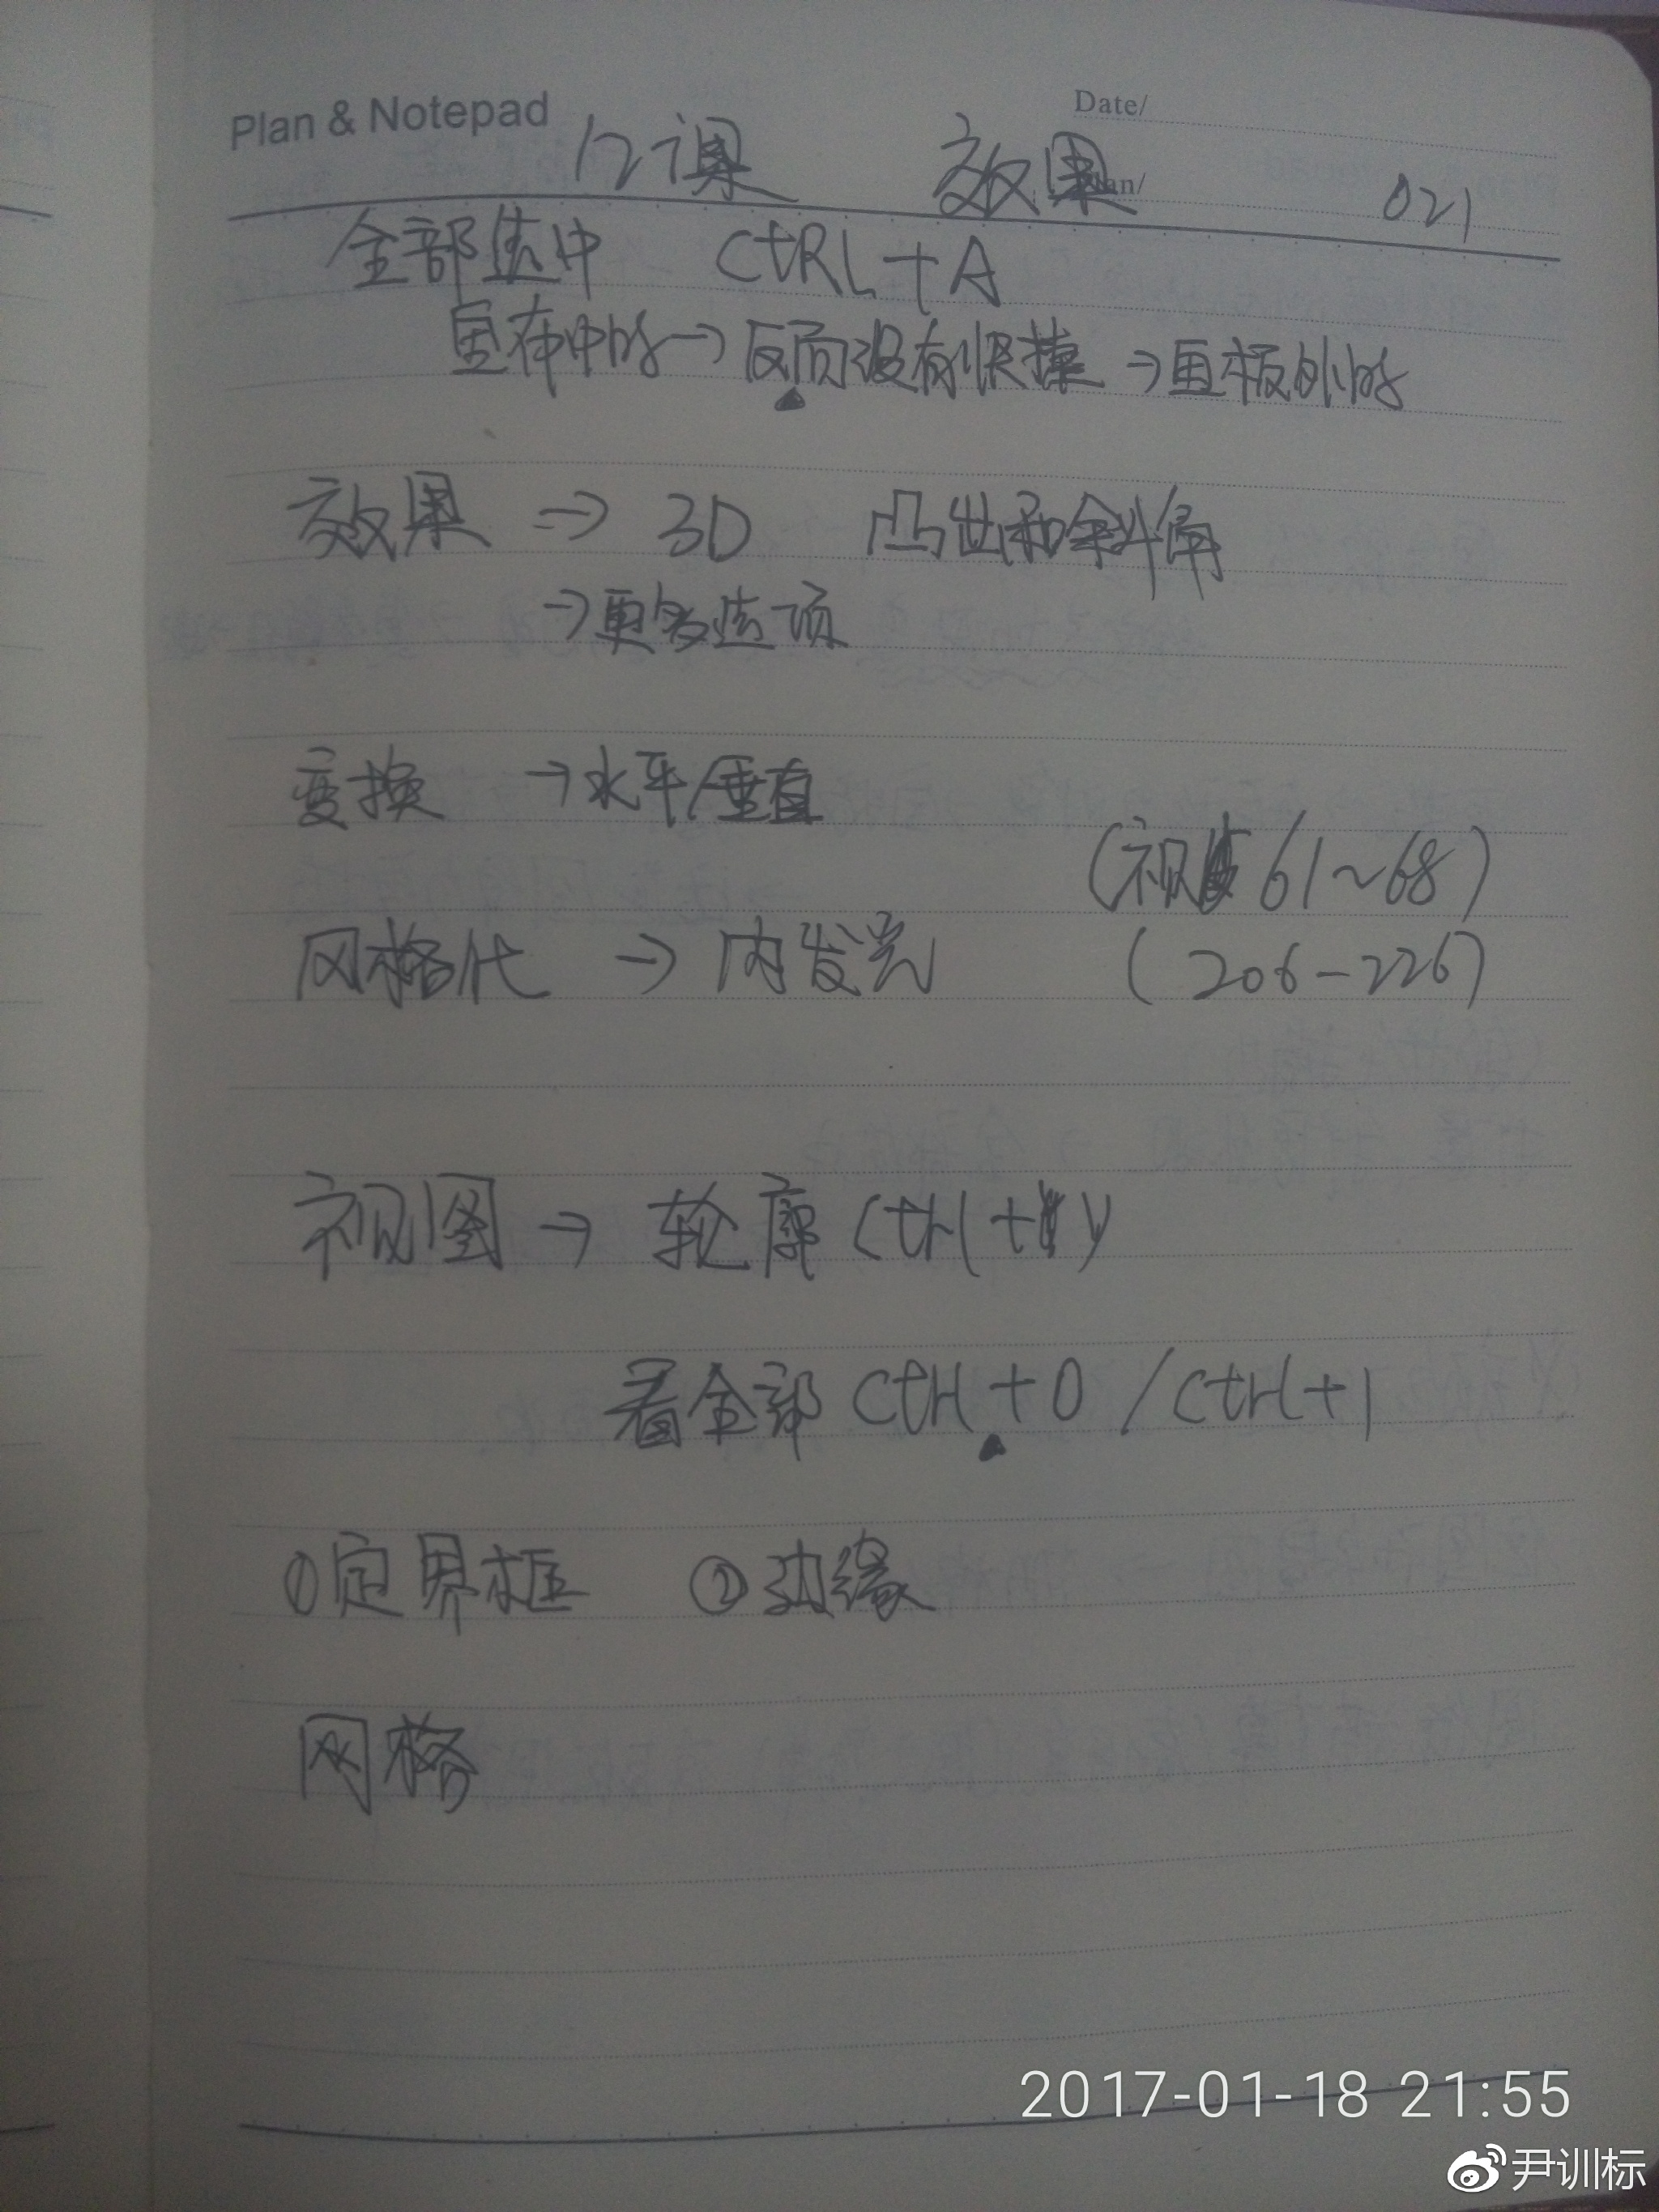 Plan & Notepad
Date/
12课 效果 021
全部选中 CtRL+A
画布中的→反面没有快捷→画板外的
效果 → 3D 凸出和斜角
→更多选项
变换 →水平/垂直
(视频 61~68)
风格化 → 内发光 (206-226)
视图 → 轮廓 Ctrl+Y
看全部 Ctrl+0 / Ctrl+1
①定界框 ②边缘
网格
2017-01-18 21:55
尹训标